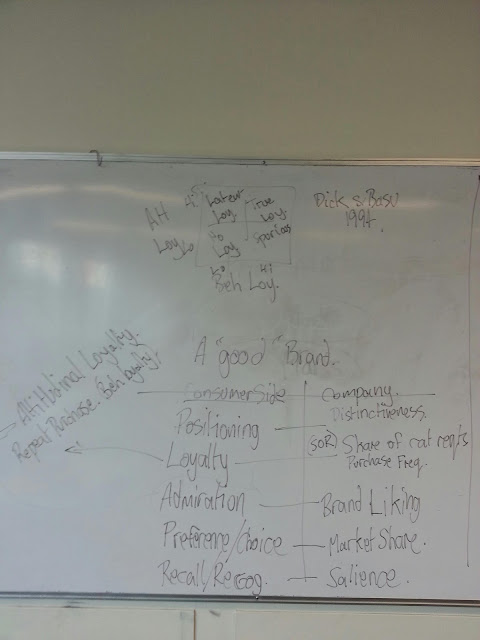 Dick & Basu
1994.
Hi Latent True
Att Loy. Loy.
Loy Lo No Spurious
Loy
Lo Hi
Beh Loy.
A "good" Brand.
Consumer Side Company.
Distinctiveness.
Positioning
(SOR) Share of cat reqts
Loyalty Purchase Freq.
Admiration Brand Liking
Preference/Choice Market Share.
Recall/Recog. Salience.
Attitudinal Loyalty.
Repeat Purchase. Beh Loyalty.